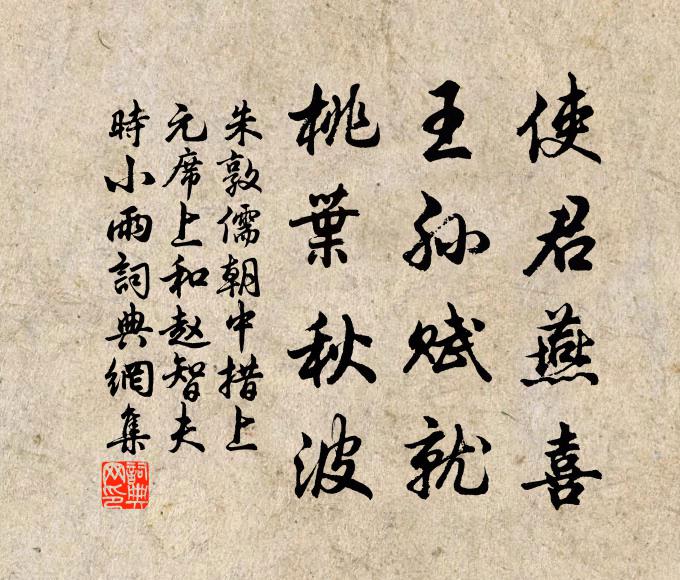 使君燕喜
王孙赋就
桃葉秋波
朱敦儒朝中措上
元席上和赵智夫
時小雨詞典網集
詞典網印